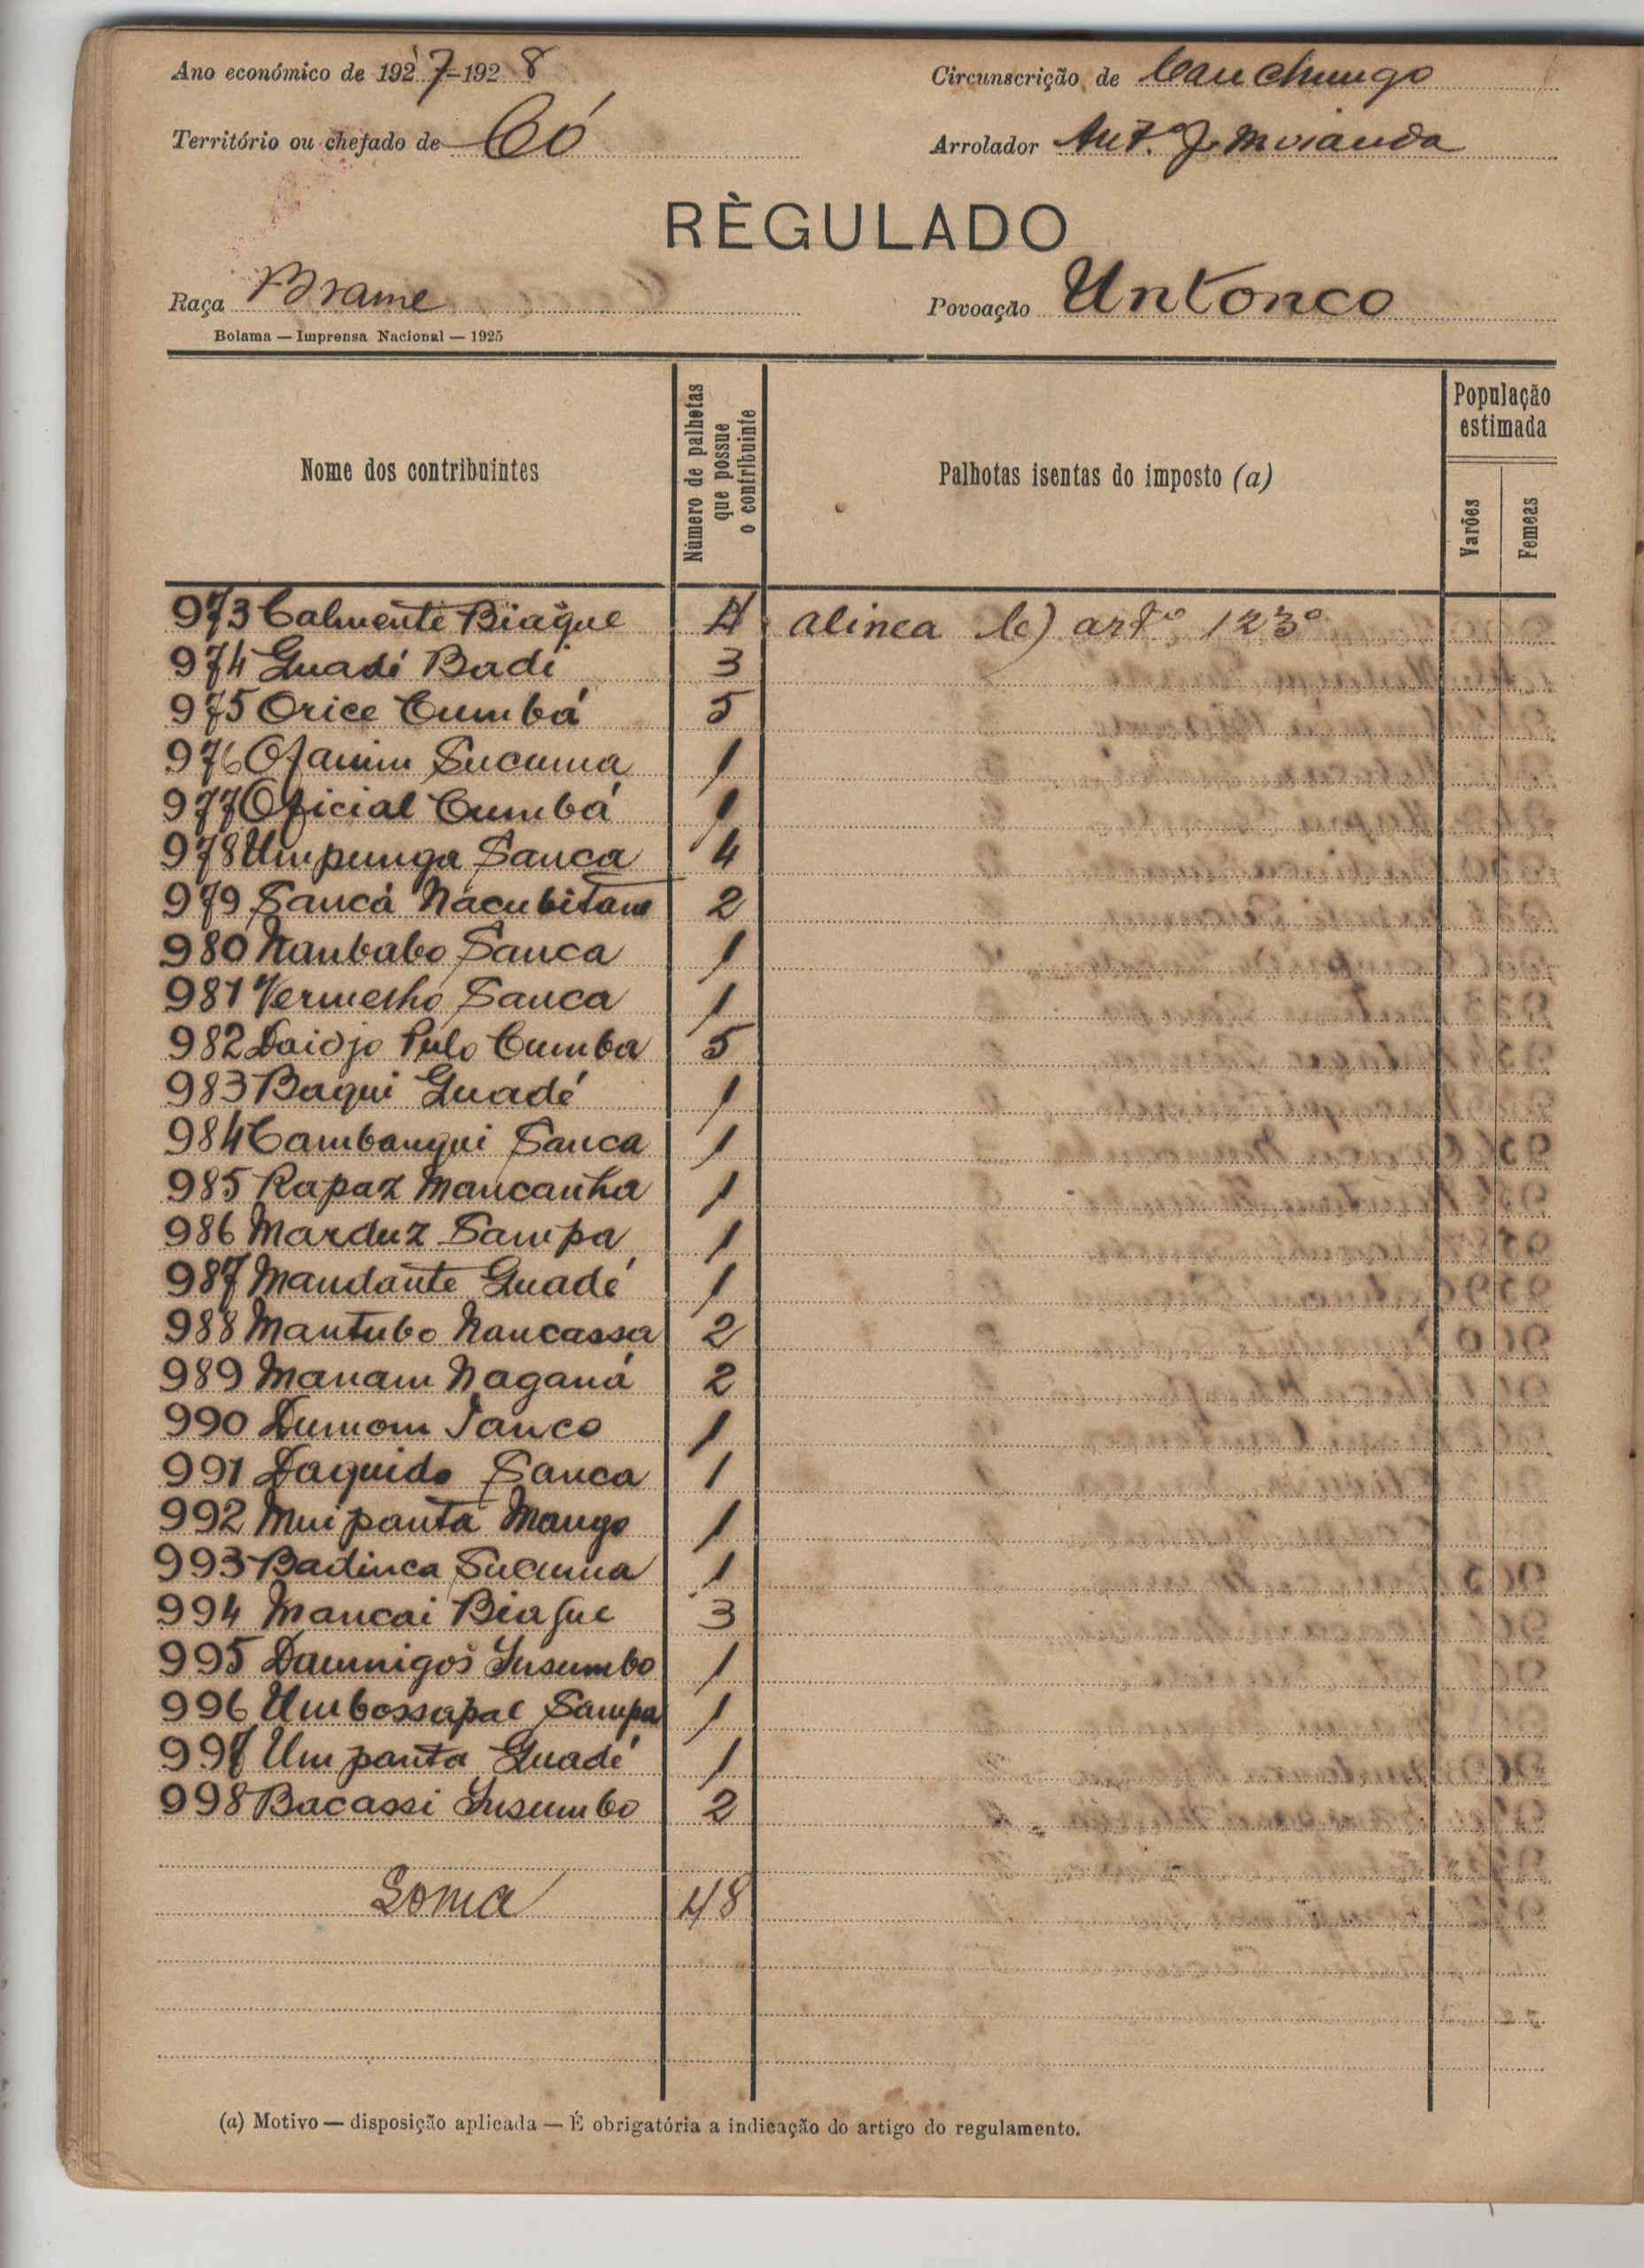 Ano económico de 1927-1928 Circunscrição de Canchungo
Território ou chefado de Có Arrolador Antº J. Miranda
RÈGULADO
Raça Brame Povoação Untonco
Bolama — Imprensa Nacional — 1925
Nome dos contribuintes
Número de palhotas que possue o contribuinte
Palhotas isentas do imposto (a)
População estimada
Varões
Femeas
973 Calmente Biague 4 alinea b) artº 123º
974 Guadé Badi 3
975 Orice Cumbá 5
976 Ofanim Sucuma 1
977 Oficial Cumbá 1
978 Umpunga Sanca 4
979 Sancá Nacubitam 2
980 Nanbabo Sanca 1
981 Vermelho Sanca 1
982 Doidjo Pulo Cumba 5
983 Baqui Guadé 1
984 Cambanqui Sanca 1
985 Rapaz Mancanha 1
986 Marduz Sampa 1
987 Mandante Guadé 1
988 Mantubo Nancassa 2
989 Manam Naganá 2
990 Dumom Janco 1
991 Daguido Sanca 1
992 Muipanta Mango 1
993 Badinca Sucuma 1
994 Mancai Biague 3
995 Damnigos Insumbo 1
996 Umbossapal Sampa 1
997 Umpanta Guadé 1
998 Bacassi Insumbo 2
Soma 48
(a) Motivo — disposição aplicada — É obrigatória a indicação do artigo do regulamento.